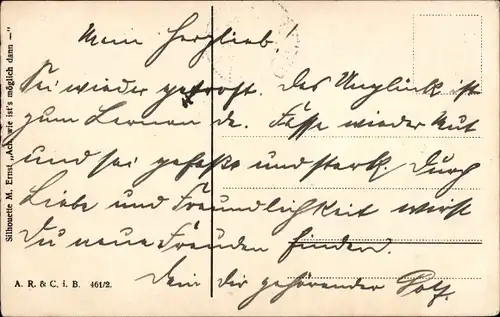 Mein Herzlieb!
Sei wieder getrost. Das Unglück ist
zum Lernen da. Fasse wieder Mut
und sei gefaßt und stark. Durch
Liebe und Freundlichkeit wirst
Du neue Freuden finden.
Dein Dir gehörender
Silhouette M. Ernst „Ach, wie ist's möglich dann —“
A. R. & C. i. B. 461/2.